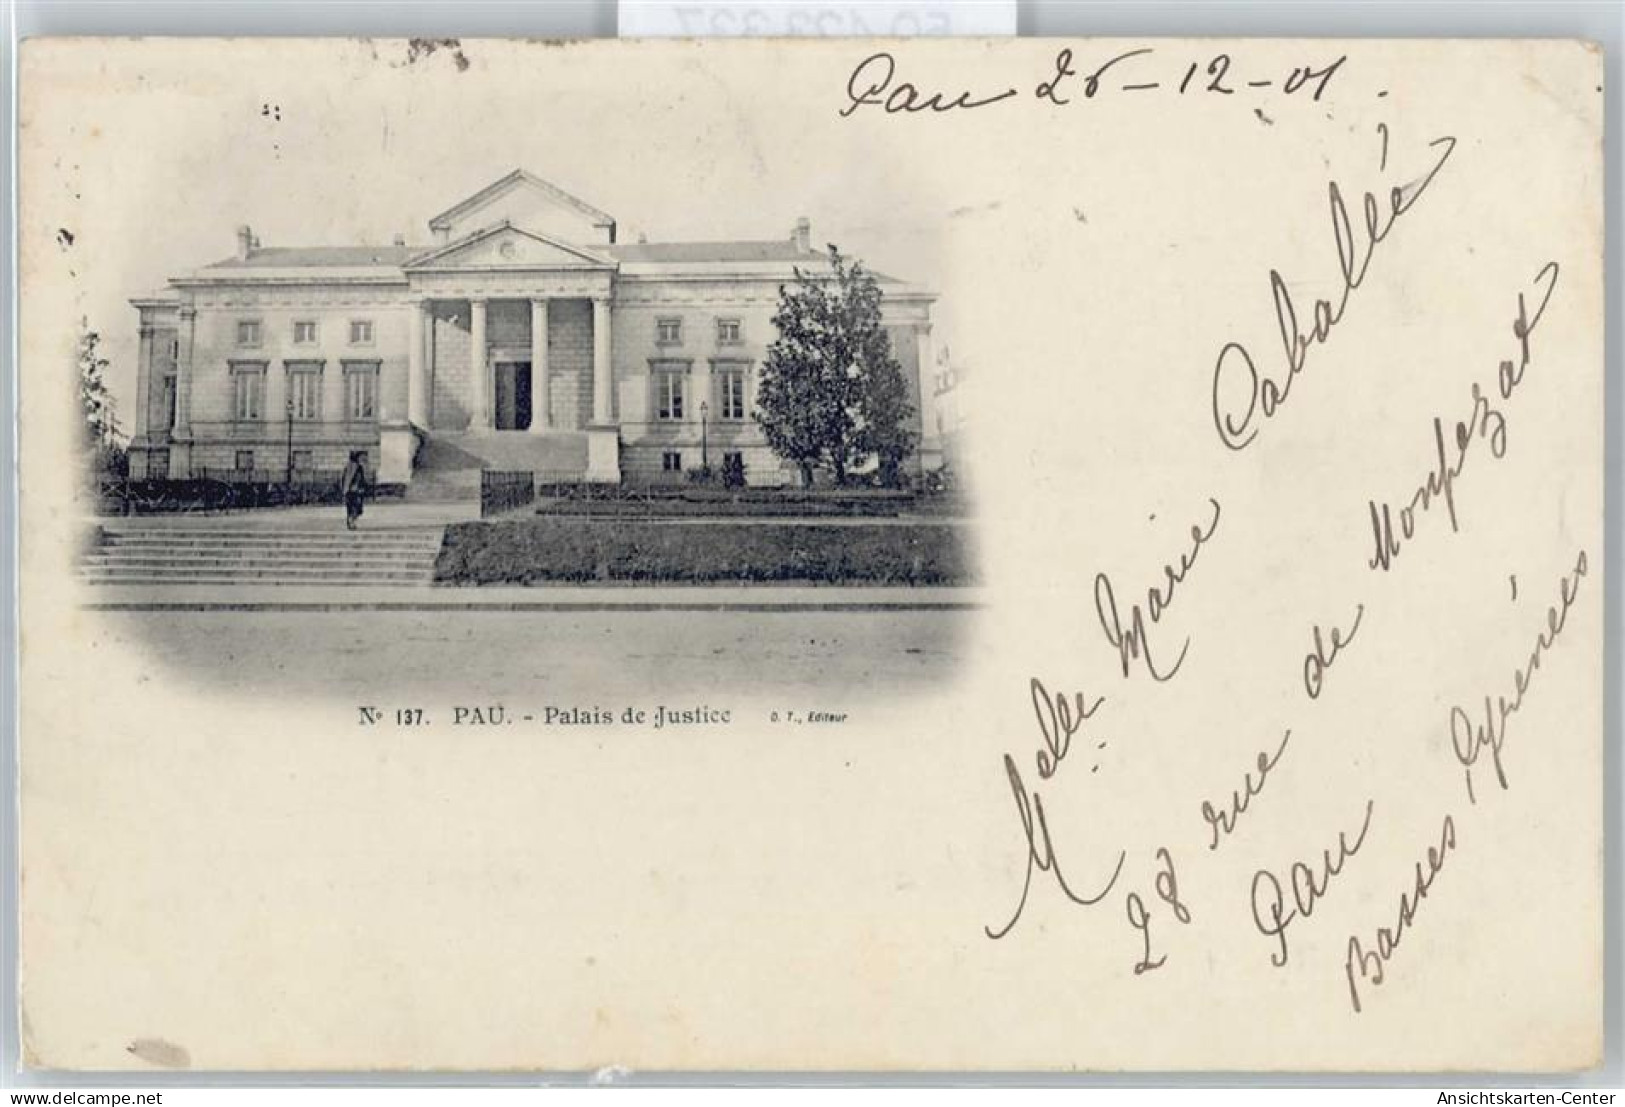 Pau 26-12-01.
Melle Marie Caballé
28 rue de Monpezat
Pau
Basses Pyrénées
Nº 137. PAU. - Palais de Justice D. T., Editeur
delcampe.net
Ansichtskarten-Center